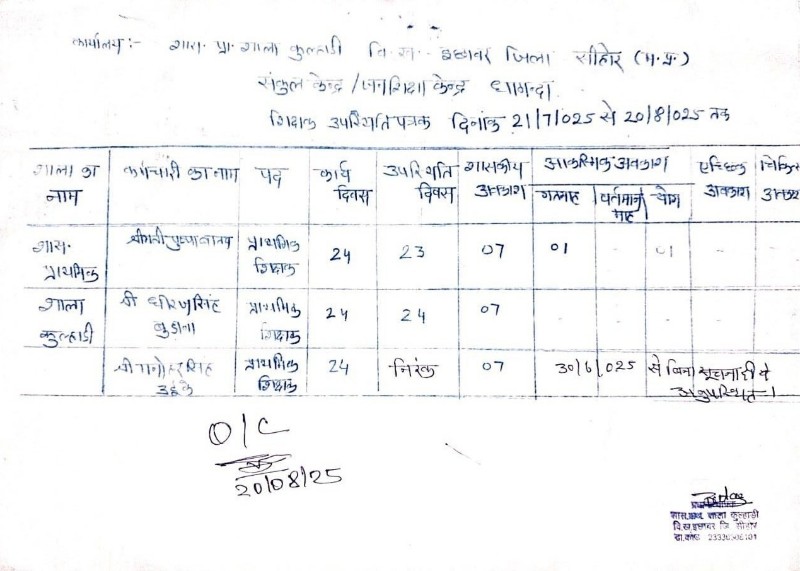 कार्यालय:- शास. प्रा. शाला कुल्हाडी वि.ख. इछावर जिला सीहोर (म.प्र.)
संकुल केन्द्र/जनशिक्षा केन्द्र धामन्दा
शिक्षक उपस्थिति पत्रक दिनांक 21/7/025 से 20/8/025 तक
शाला का नाम कर्मचारी का नाम पद कार्य दिवस उपस्थिति दिवस शासकीय अवकाश आकस्मिक अवकाश एच्छिक अवकाश
गतमाह वर्तमान माह योग
शास. प्राथमिक प्राथमिक शिक्षक 24 23 07 01 - 01 - -
शाला कुल्हाडी श्री धीरजसिंह प्राथमिक शिक्षक 24 24 07 - - - - -
प्राथमिक शिक्षक 24 निरंक 07 30/6/025 से बिना सूचना दी
अनुपस्थित-।
O/C
20/08/25
शाला कुल्हाडी
वि.ख.इछावर जि. सीहोर